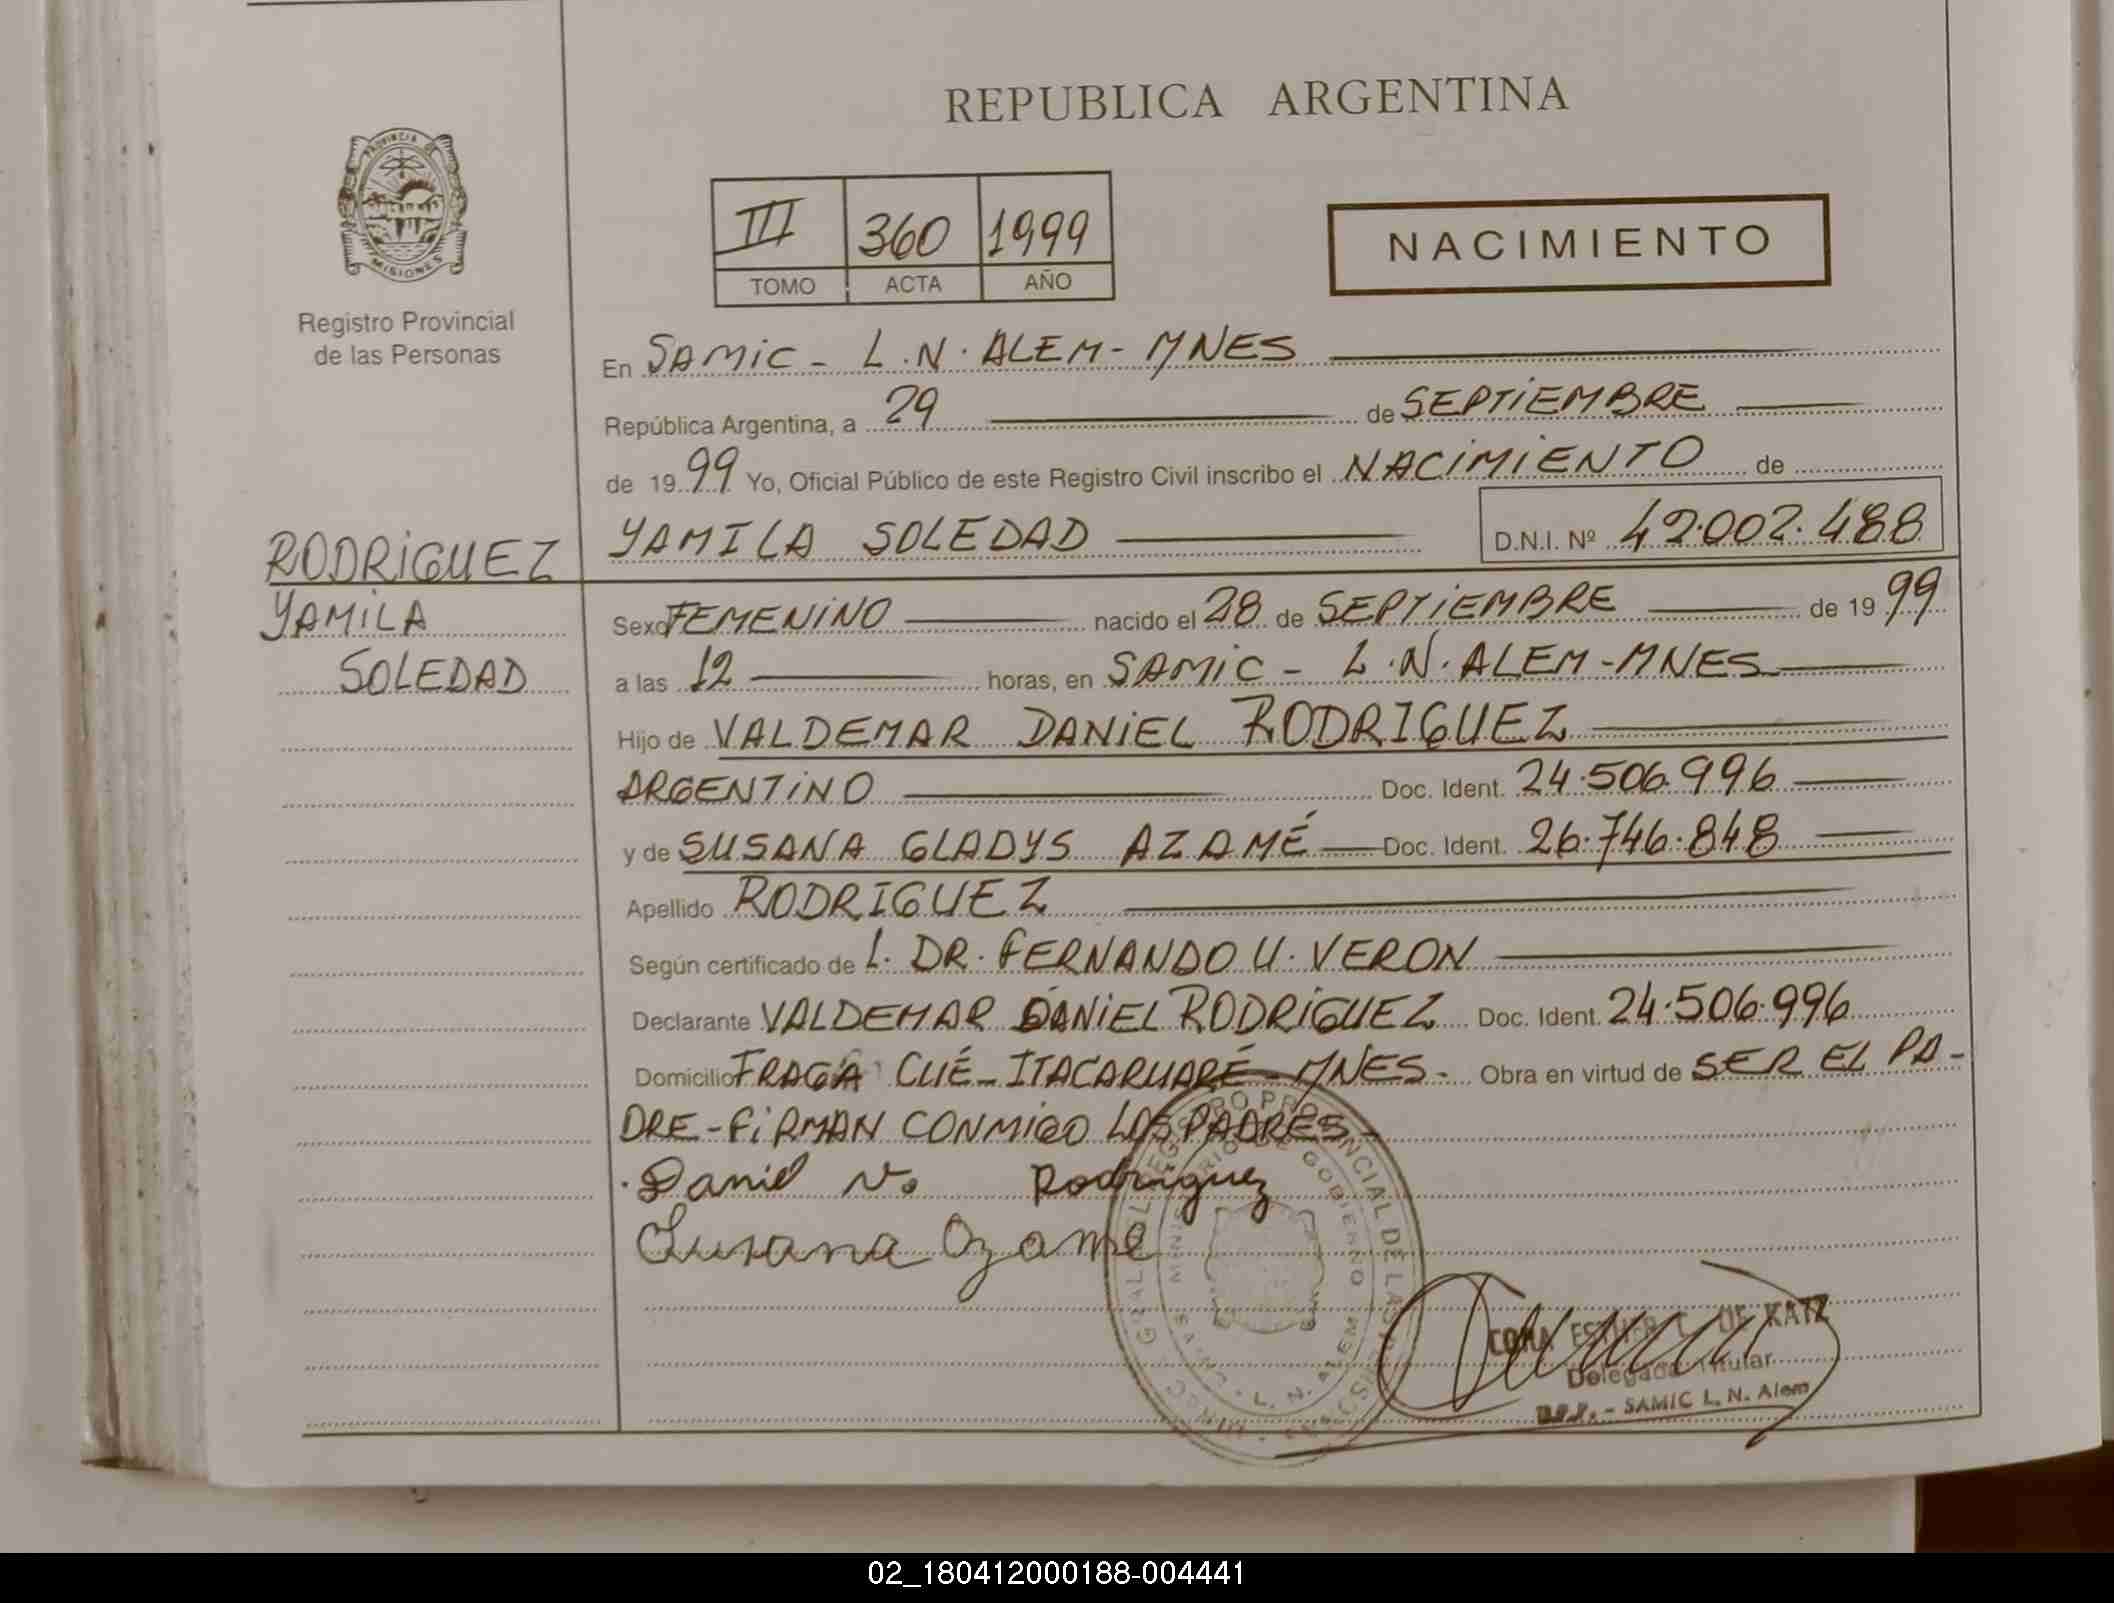 REPUBLICA ARGENTINA
PROVINCIA DE
MISIONES
Registro Provincial
de las Personas
III 360 1999
TOMO ACTA AÑO
NACIMIENTO
En SAMIC - L.N. ALEM - MNES
República Argentina, a 29 de SEPTIEMBRE
de 1999 Yo, Oficial Público de este Registro Civil inscribo el NACIMIENTO de
YAMILA SOLEDAD D.N.I. Nº 42.002.488
RODRIGUEZ
YAMILA
SOLEDAD
Sexo FEMENINO nacido el 28 de SEPTIEMBRE de 1999
a las 12 horas, en SAMIC - L.N. ALEM - MNES
Hijo de VALDEMAR DANIEL RODRIGUEZ
ARGENTINO Doc. Ident. 24.506.996
y de SUSANA GLADYS AZAMÉ Doc. Ident. 26.746.848
Apellido RODRIGUEZ
Según certificado de L. DR. FERNANDO U. VERON
Declarante VALDEMAR DANIEL RODRIGUEZ Doc. Ident. 24.506.996
Domicilio FRAGA CUÉ - ITACARUARÉ - MNES - Obra en virtud de SER EL PA-
DRE - FIRMAN CONMIGO LOS PADRES -
Daniel V. Rodriguez
Susana Azame
ESTHER C. DE KATZ
Delegada Titular
SAMIC L. N. Alem
02_180412000188-004441